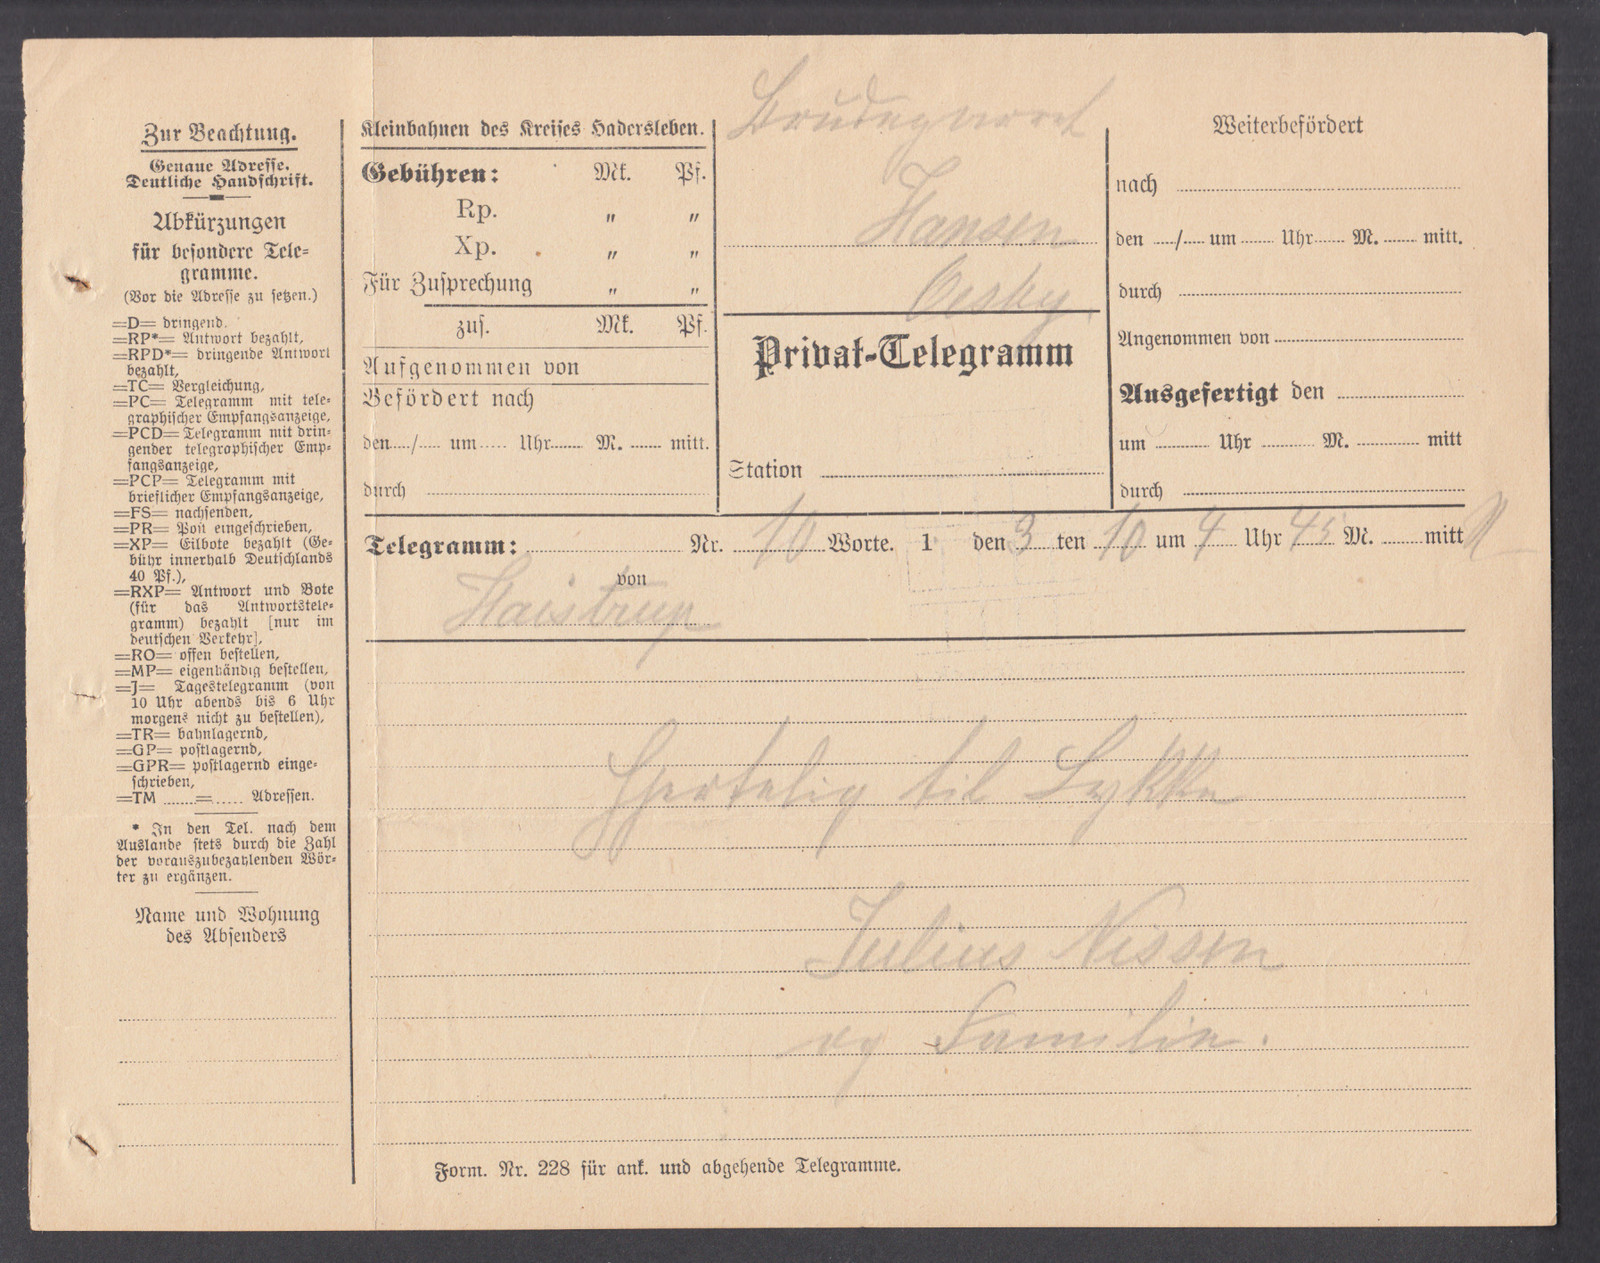 Zur Beachtung.
Genaue Adresse.
Deutliche Handschrift.
Abkürzungen
für besondere Tele-
gramme.
(Vor die Adresse zu setzen.)
=D= dringend.
=RP*= Antwort bezahlt,
=RPD*= dringende Antwort
bezahlt,
=TC= Vergleichung,
=PC= Telegramm mit tele-
graphischer Empfangsanzeige,
=PCD= Telegramm mit drin-
gender telegraphischer Emp-
fangsanzeige,
=PCP= Telegramm mit
brieflicher Empfangsanzeige,
=FS= nachsenden,
=PR= Post eingeschrieben,
=XP= Eilbote bezahlt (Ge-
bühr innerhalb Deutschlands
40 Pf.),
=RXP= Antwort und Bote
(für das Antwortstele-
gramm) bezahlt [nur im
deutschen Verkehr],
=RO= offen bestellen,
=MP= eigenhändig bestellen,
=J= Tagestelegramm (von
10 Uhr abends bis 6 Uhr
morgens nicht zu bestellen),
=TR= bahnlagernd,
=GP= postlagernd,
=GPR= postlagernd einge-
schrieben,
=TM ......=...... Adressen.
* In den Tel. nach dem
Auslande stets durch die Zahl
der vorauszubezahlenden Wör-
ter zu ergänzen.
Name und Wohnung
des Absenders
Kleinbahnen des Kreises Hadersleben.
Gebühren: Mk. Pf.
Rp. " "
Xp. " "
Für Zusprechung " "
zus. Mk. Pf.
Aufgenommen von
Befördert nach
den..../.... um..... Uhr...... M. ...... mitt.
durch
Hansen
Oesby
Privat-Telegramm
Station
Weiterbefördert
nach
den ..../.... um ...... Uhr...... M. ...... mitt.
durch
Angenommen von
Ausgefertigt den
um ........ Uhr ........ M. ........ mitt
durch
Telegramm: Nr. 10 Worte. 1 den 3 ten 10 um 4 Uhr 45 M. ........ mitt N
von
Haistrup
Hjertelig til Lykke
Julius Nissen
og Familie.
Form. Nr. 228 für ank. und abgehende Telegramme.